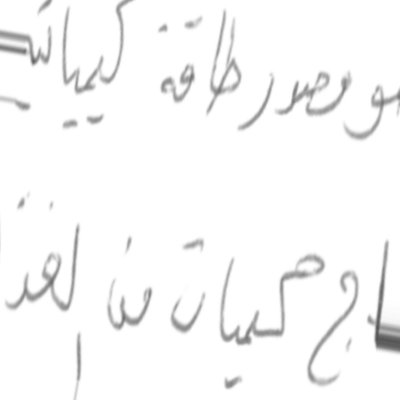 هو مصدر طاقة كيميائية
اج كميات من الغذ